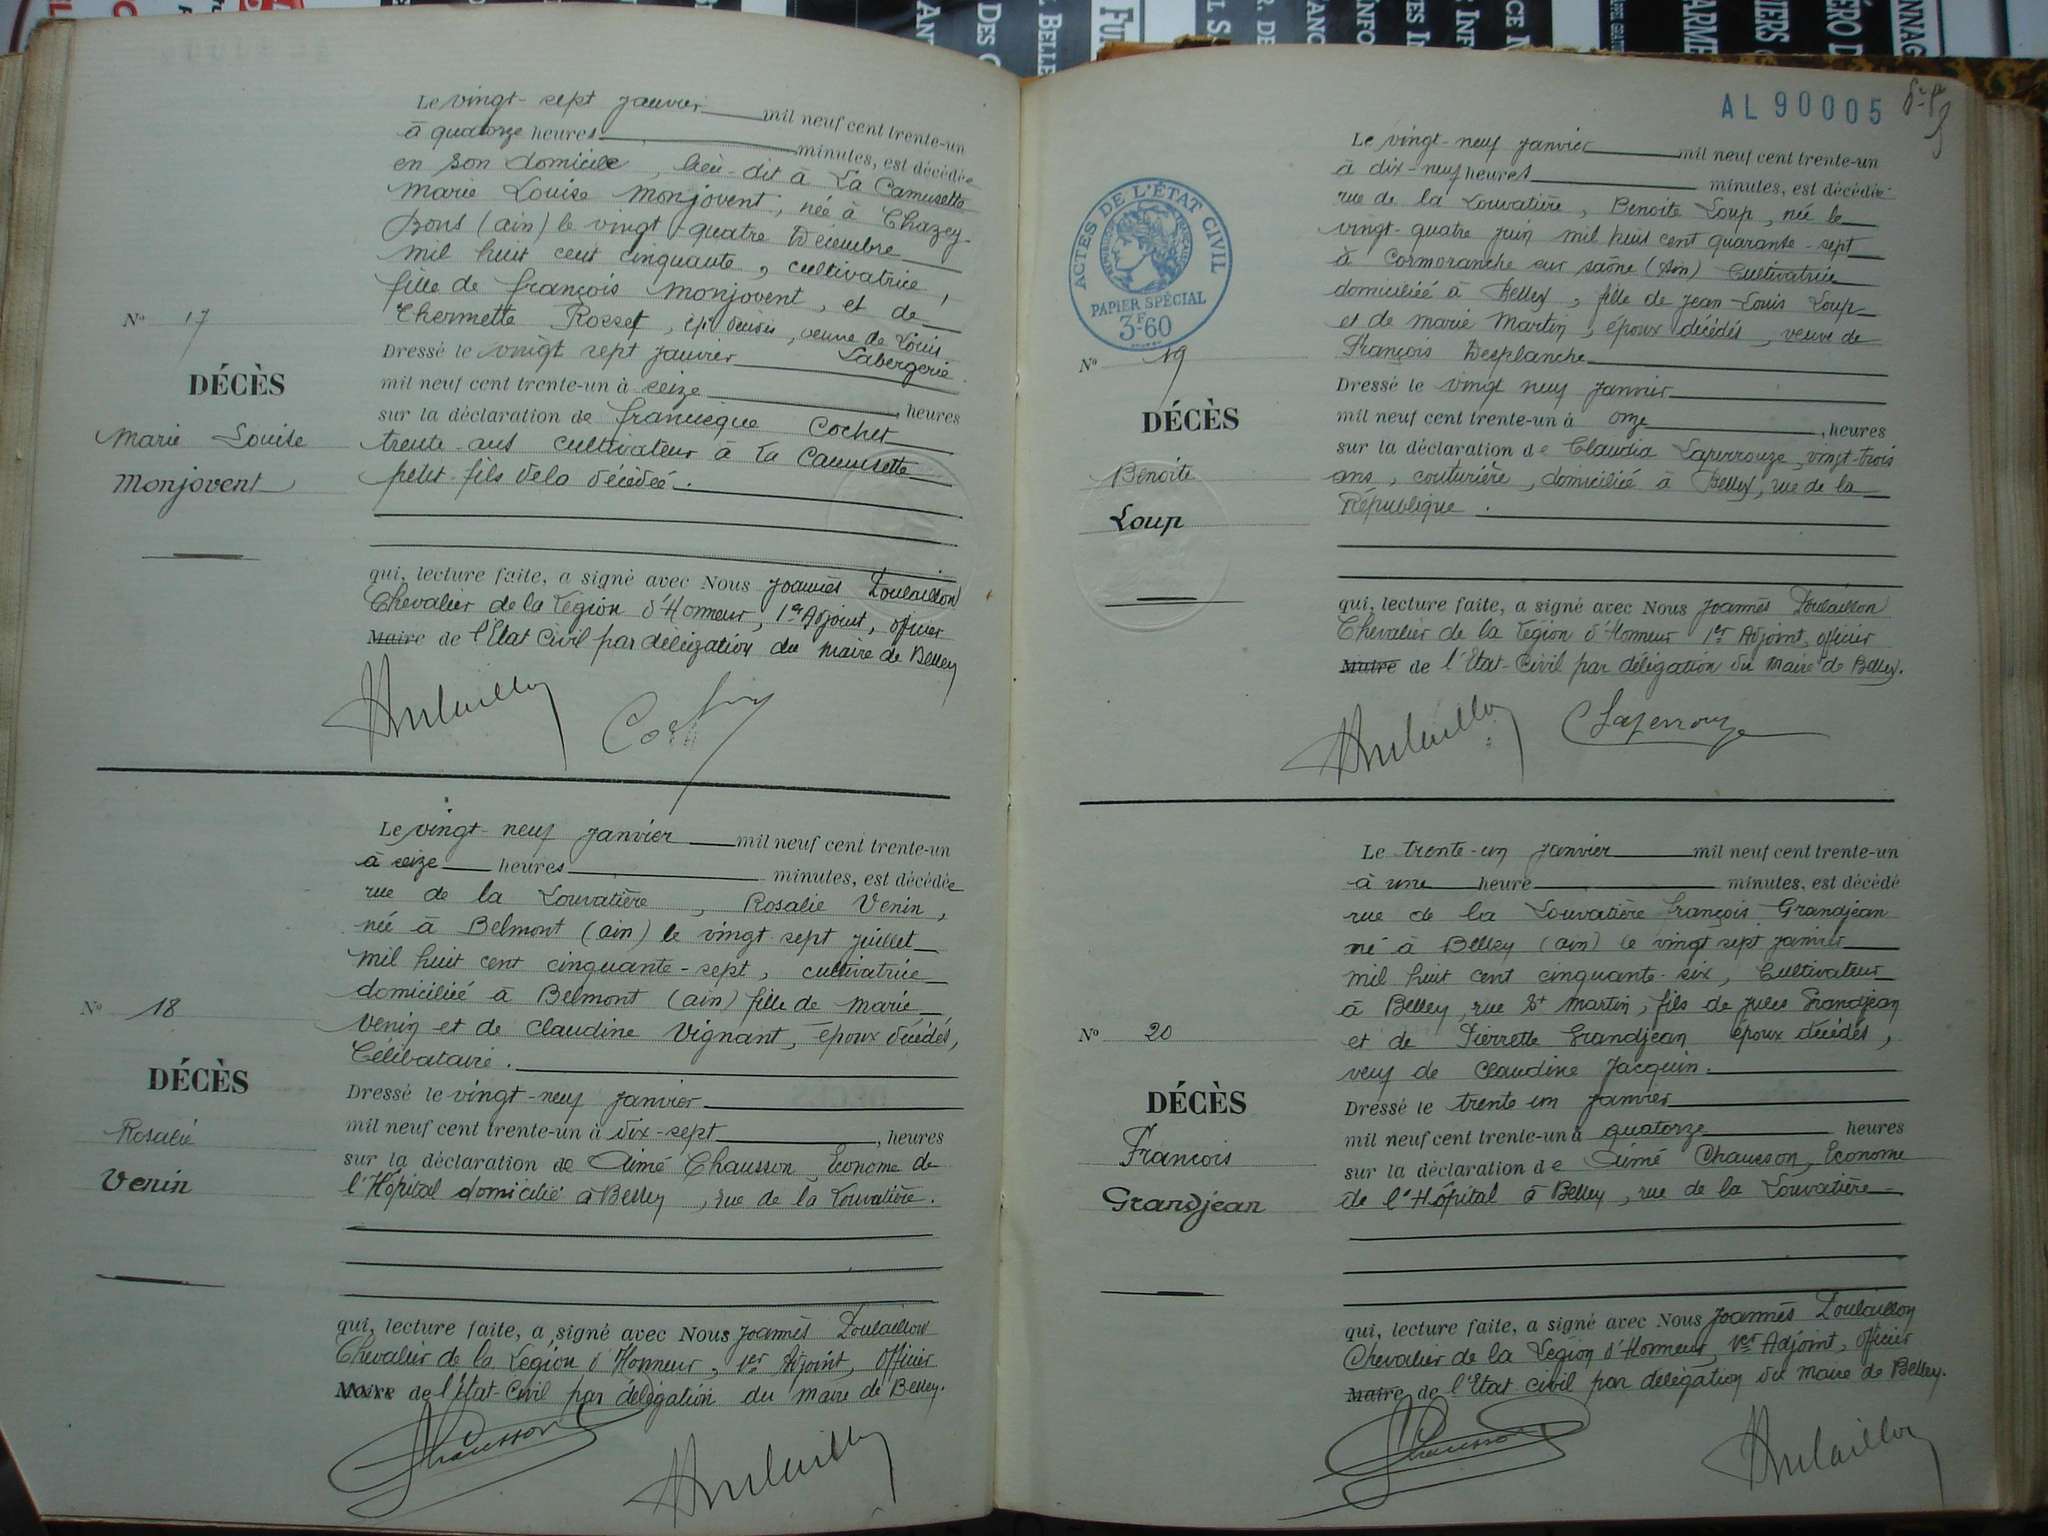 N° 17
DÉCÈS
Marie Louise
Monjovent
Le vingt-sept janvier mil neuf cent trente-un
à quatorze heures minutes, est décédée
en son domicile, lieu-dit à La Camusette
Marie Louise Monjovent, née à Chazey-
Bons (ain) le vingt-quatre Décembre
mil huit cent cinquante, cultivatrice,
fille de François Monjovent, et de
Thermette Rosset, veuve de Louis
Labergerie
Dressé le vingt sept janvier
mil neuf cent trente-un à seize heures
sur la déclaration de francisque Cochet
trente ans cultivateur à La Camusette
petit-fils de la décédée.
qui, lecture faite, a signé avec Nous Joannès Poulaillon
Chevalier de la Légion d'Honneur, 1er Adjoint, officier
Maire de l'Etat Civil par délégation du maire de Belley
N° 18
DÉCÈS
Rosalie
Venin
Le vingt-neuf janvier mil neuf cent trente-un
à seize heures minutes, est décédée
rue de la Louvatière, Rosalie Venin,
née à Belmont (ain) le vingt-sept juillet
mil huit cent cinquante-sept, cultivatrice
domiciliée à Belmont (ain) fille de Marie
Venin et de Claudine Vignant, époux décédés,
Célibataire.
Dressé le vingt-neuf janvier
mil neuf cent trente-un à dix-sept, heures
sur la déclaration de Aimé Chausson, Econome de
l'Hôpital domicilié à Belley, rue de la Louvatière.
qui, lecture faite, a signé avec Nous Joannès Poulaillon
Chevalier de la Légion d'Honneur, 1er Adjoint, Officier
Maire de l'Etat-Civil par délégation du maire de Belley.
Chausson
AL 90005
ACTES DE L'ÉTAT CIVIL
RÉPUBLIQUE FRANÇAISE
PAPIER SPÉCIAL
3F60
N° 19
DÉCÈS
Benoite
Loup
Le vingt-neuf janvier mil neuf cent trente-un
à dix-neuf heures minutes, est décédée
rue de la Louvatière, Benoite Loup, née le
vingt-quatre juin mil huit cent quarante-sept
à Cormoranche sur saône (Ain) Cultivatrice
domiciliée à Belley, fille de Jean-Louis Loup
et de Marie Martin, époux décédés, veuve de
François Desplanche
Dressé le vingt neuf janvier
mil neuf cent trente-un à onze, heures
sur la déclaration de Claudia Laperrouze, vingt-trois
ans, couturière, domiciliée à Belley, rue de la
République.
qui, lecture faite, a signé avec Nous Joannès Poulaillon
Chevalier de la Légion d'Honneur 1er Adjoint, officier
Maire de l'Etat-Civil par délégation du Maire de Belley.
C Laperrouze
N° 20
DÉCÈS
Francois
Grandjean
Le trente-un janvier mil neuf cent trente-un
à une heure minutes, est décédé
rue de la Louvatière François Grandjean
né à Belley (ain) le vingt sept janvier
mil huit cent cinquante-six, Cultivateur
à Belley, rue St Martin, fils de Jules Grandjean
et de Pierrette Grandjean époux décédés,
veuf de Claudine Jacquin.
Dressé le trente un janvier
mil neuf cent trente-un à quatorze heures
sur la déclaration de Aimé Chausson, Econome
de l'Hôpital à Belley, rue de la Louvatière
qui, lecture faite, a signé avec Nous Joannès Poulaillon
Chevalier de la Légion d'Honneur, 1er Adjoint, Officier
Maire de l'Etat civil par délégation du maire de Belley.
Chausson